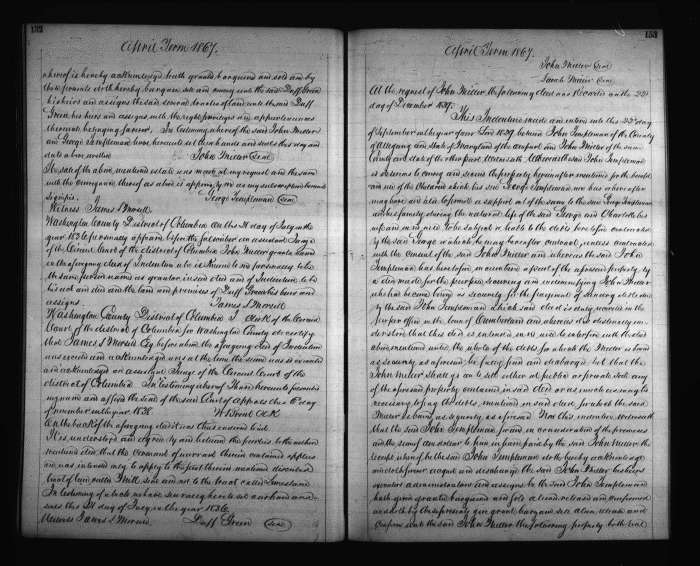 152
April Term 1867.
whereof is hereby acknowledged hath granted bargained and sold and by
these presents doth hereby bargain sell and convey unto the said Duff Green
his heirs and assigns the said several tracts of land unto the said Duff
Green his heirs and assigns with the rights privileges and appurtenances
thereunto belonging forever. In testimony whereof the said John Miller
and George Templeman have hereunto set our hands and seals this day and
date above written John Miller Seal
The sale of the above mentioned estate was made at my request and the same
with the conveyance thereof as above is approved by me as my subscription hereunto
signifies. George Templeman Seal
Witness James S Morsell
Washington County District of Columbia on this 21 day of July in the
year 1836 personally appeared before the subscriber an assistant Judge
of the Circuit Court of the district of Columbia John Miller grantor named
in the aforegoing deed of Indenture who is known to me personally to be
the same person named as grantor in said deed and of Indenture to be
his act and deed and the land and premises of Duff Green his heirs and
assigns James S Morsell
Washington County District of Columbia I Clerk of the Circuit
Court of the district of Columbia for Washington County do certify
that James S Morsell Esq before whom the aforegoing deed of Indenture
was executed and acknowledged was at the time the same was so executed
and acknowledged an assistant Judge of the Circuit Court of the
district of Columbia In testimony whereof I have hereunto presents
my name and affixed the seal of the said Court of appeals this 6th day
of November in the year 1838. W Brent Clk
On the back of the aforegoing deed it was thus endorsed to wit
It is understood and agreed by and between the parties to the within
mentioned deed that the covenant of warrant therein contained applies
and was intended only to apply to the first therein mentioned
tract of land called Mill seat and not to the tract called Limestone
In testimony of which we have severally hereto set our hand and
seals this 21 day of July in the year 1836
Witness James S Morsell. Duff Green Seal
153
April Term 1867.
John Miller Seal
Sarah Miller Seal
At the request of John Miller the following deed was recorded on the 23d
day of December 1839.
This Indenture made and entered into this 23d day
of September in the year of our Lord 1839 between John Templeman of the County
of Allegany and State of Maryland of the one part and John Miller of the same
County and State of the other part Witnesseth Whereas the said John Templeman
is desirous to convey and secure the property hereinafter mentioned for the benefit
and use of the Children which his son George Templeman now has or hereafter
may have and also to furnish a support out of the same to the said George Templeman
and his family during the natural life of the said George and Charlotte his
wife and in no wise to be subject or liable to the debts heretofore contracted
by the said George or which he may hereafter contract, unless contracted
with the consent of the said John Miller and whereas the said John
Templeman has heretofore incumbered a part of the aforesaid property by
a deed made for the purpose securing and indemnifying John Miller
who had become bring as security for the payment of sundry debts due
by the said John Templeman which said deed is duly recorded in the
proper office in the town of Cumberland and whereas it is distinctly un-
derstood that this deed is intended
above mentioned until the whole of the debts for which the Miller is bound
as security as aforesaid be fully paid and discharged but that the
John Miller shall go on to sell either at public or private sale any
of the aforesaid property contained in said deed or as much as may be
necessary to pay the debts mentioned in said deed for which the said
Miller is bound as security as aforesaid Now this indenture witnesseth
that the said John Templeman for and in consideration of the premises
and the sum of one dollar to him in hand paid by the said John Miller the
receipt whereof he the said John Templeman doth hereby acknowledge
and doth forever acquit and discharge the said John Miller his heirs
executors administrators and assigns he the said John Templeman
hath given granted bargained and sold aliened released and confirmed
and doth by these presents give grant bargain sell alien release and
confirm unto the said John Miller the following property both real